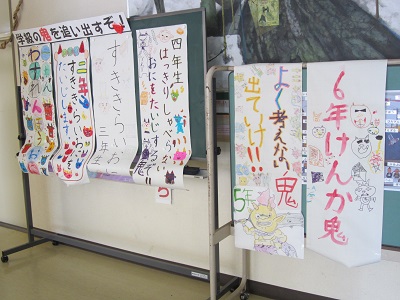 学級の鬼を追い出すぞ!
二年
すききらいお
すききらいお
三年生
四年生
はっきりしゃべらない
おにをたいじするぞ
よく考えない鬼
出ていけ!!
5年
6年けんか鬼